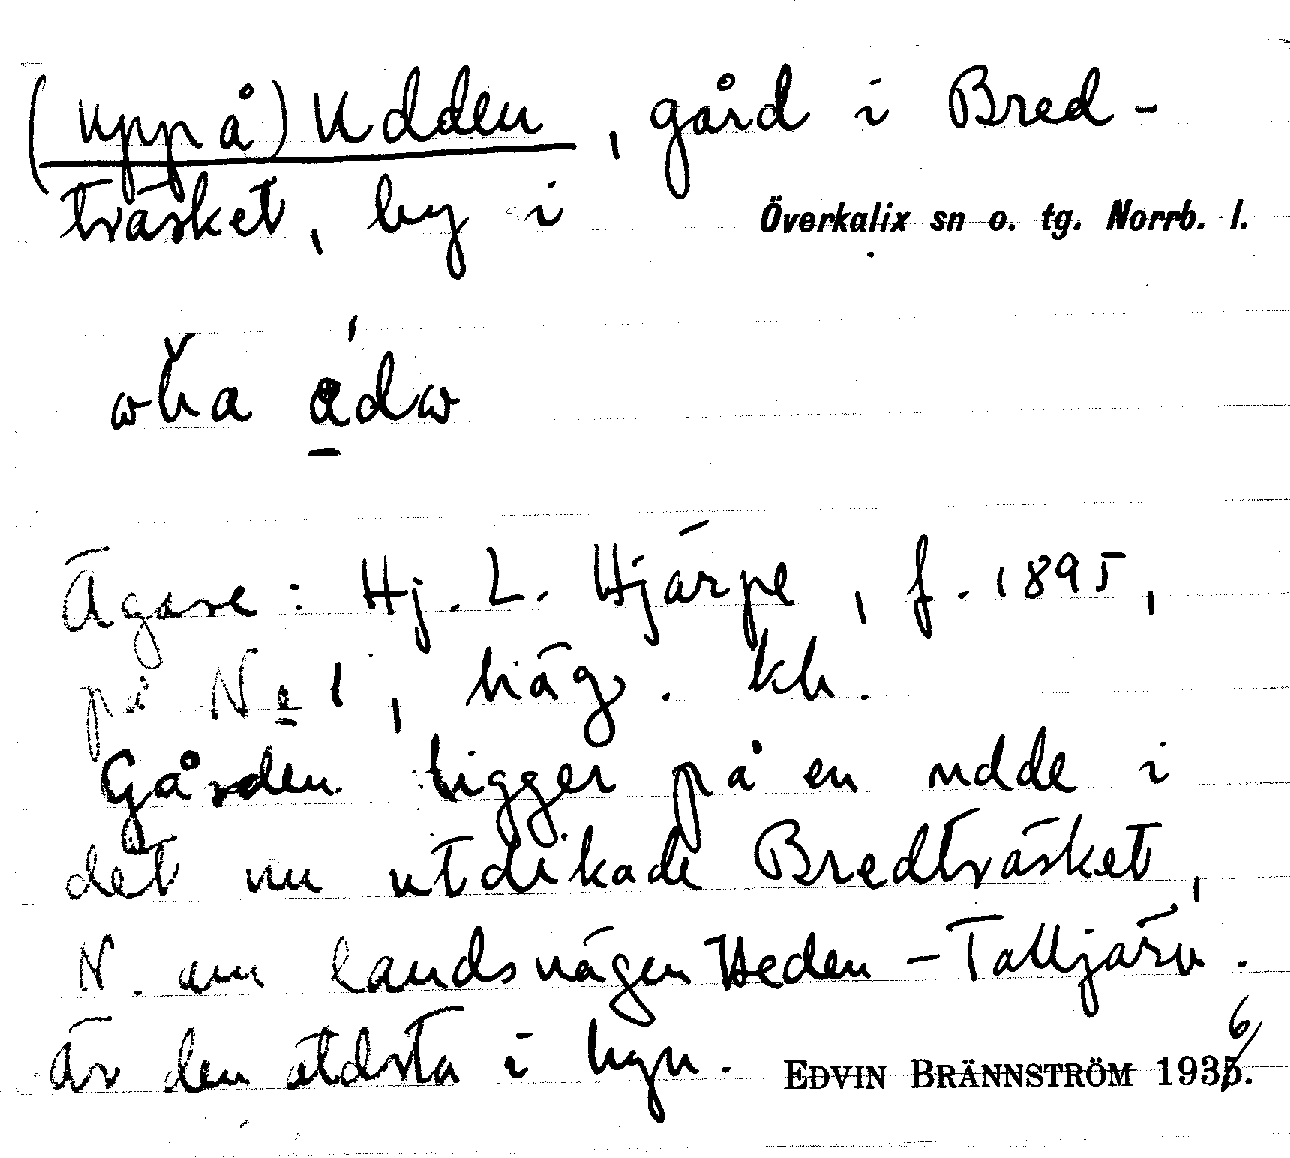 (uppå) Udden, gård i Bred-
träsket, by i Överkalix sn o. tg. Norrb. l.
Ägare: Hj. L. Hjärpe, f. 1895,
på No 1, häg. kh.
Gården ligger på en udde i
det nu utdikade Bredträsket,
N. om landsvägen Heden - Talljärv.
Är den äldsta i byn. EDVIN BRÄNNSTRÖM 1936.